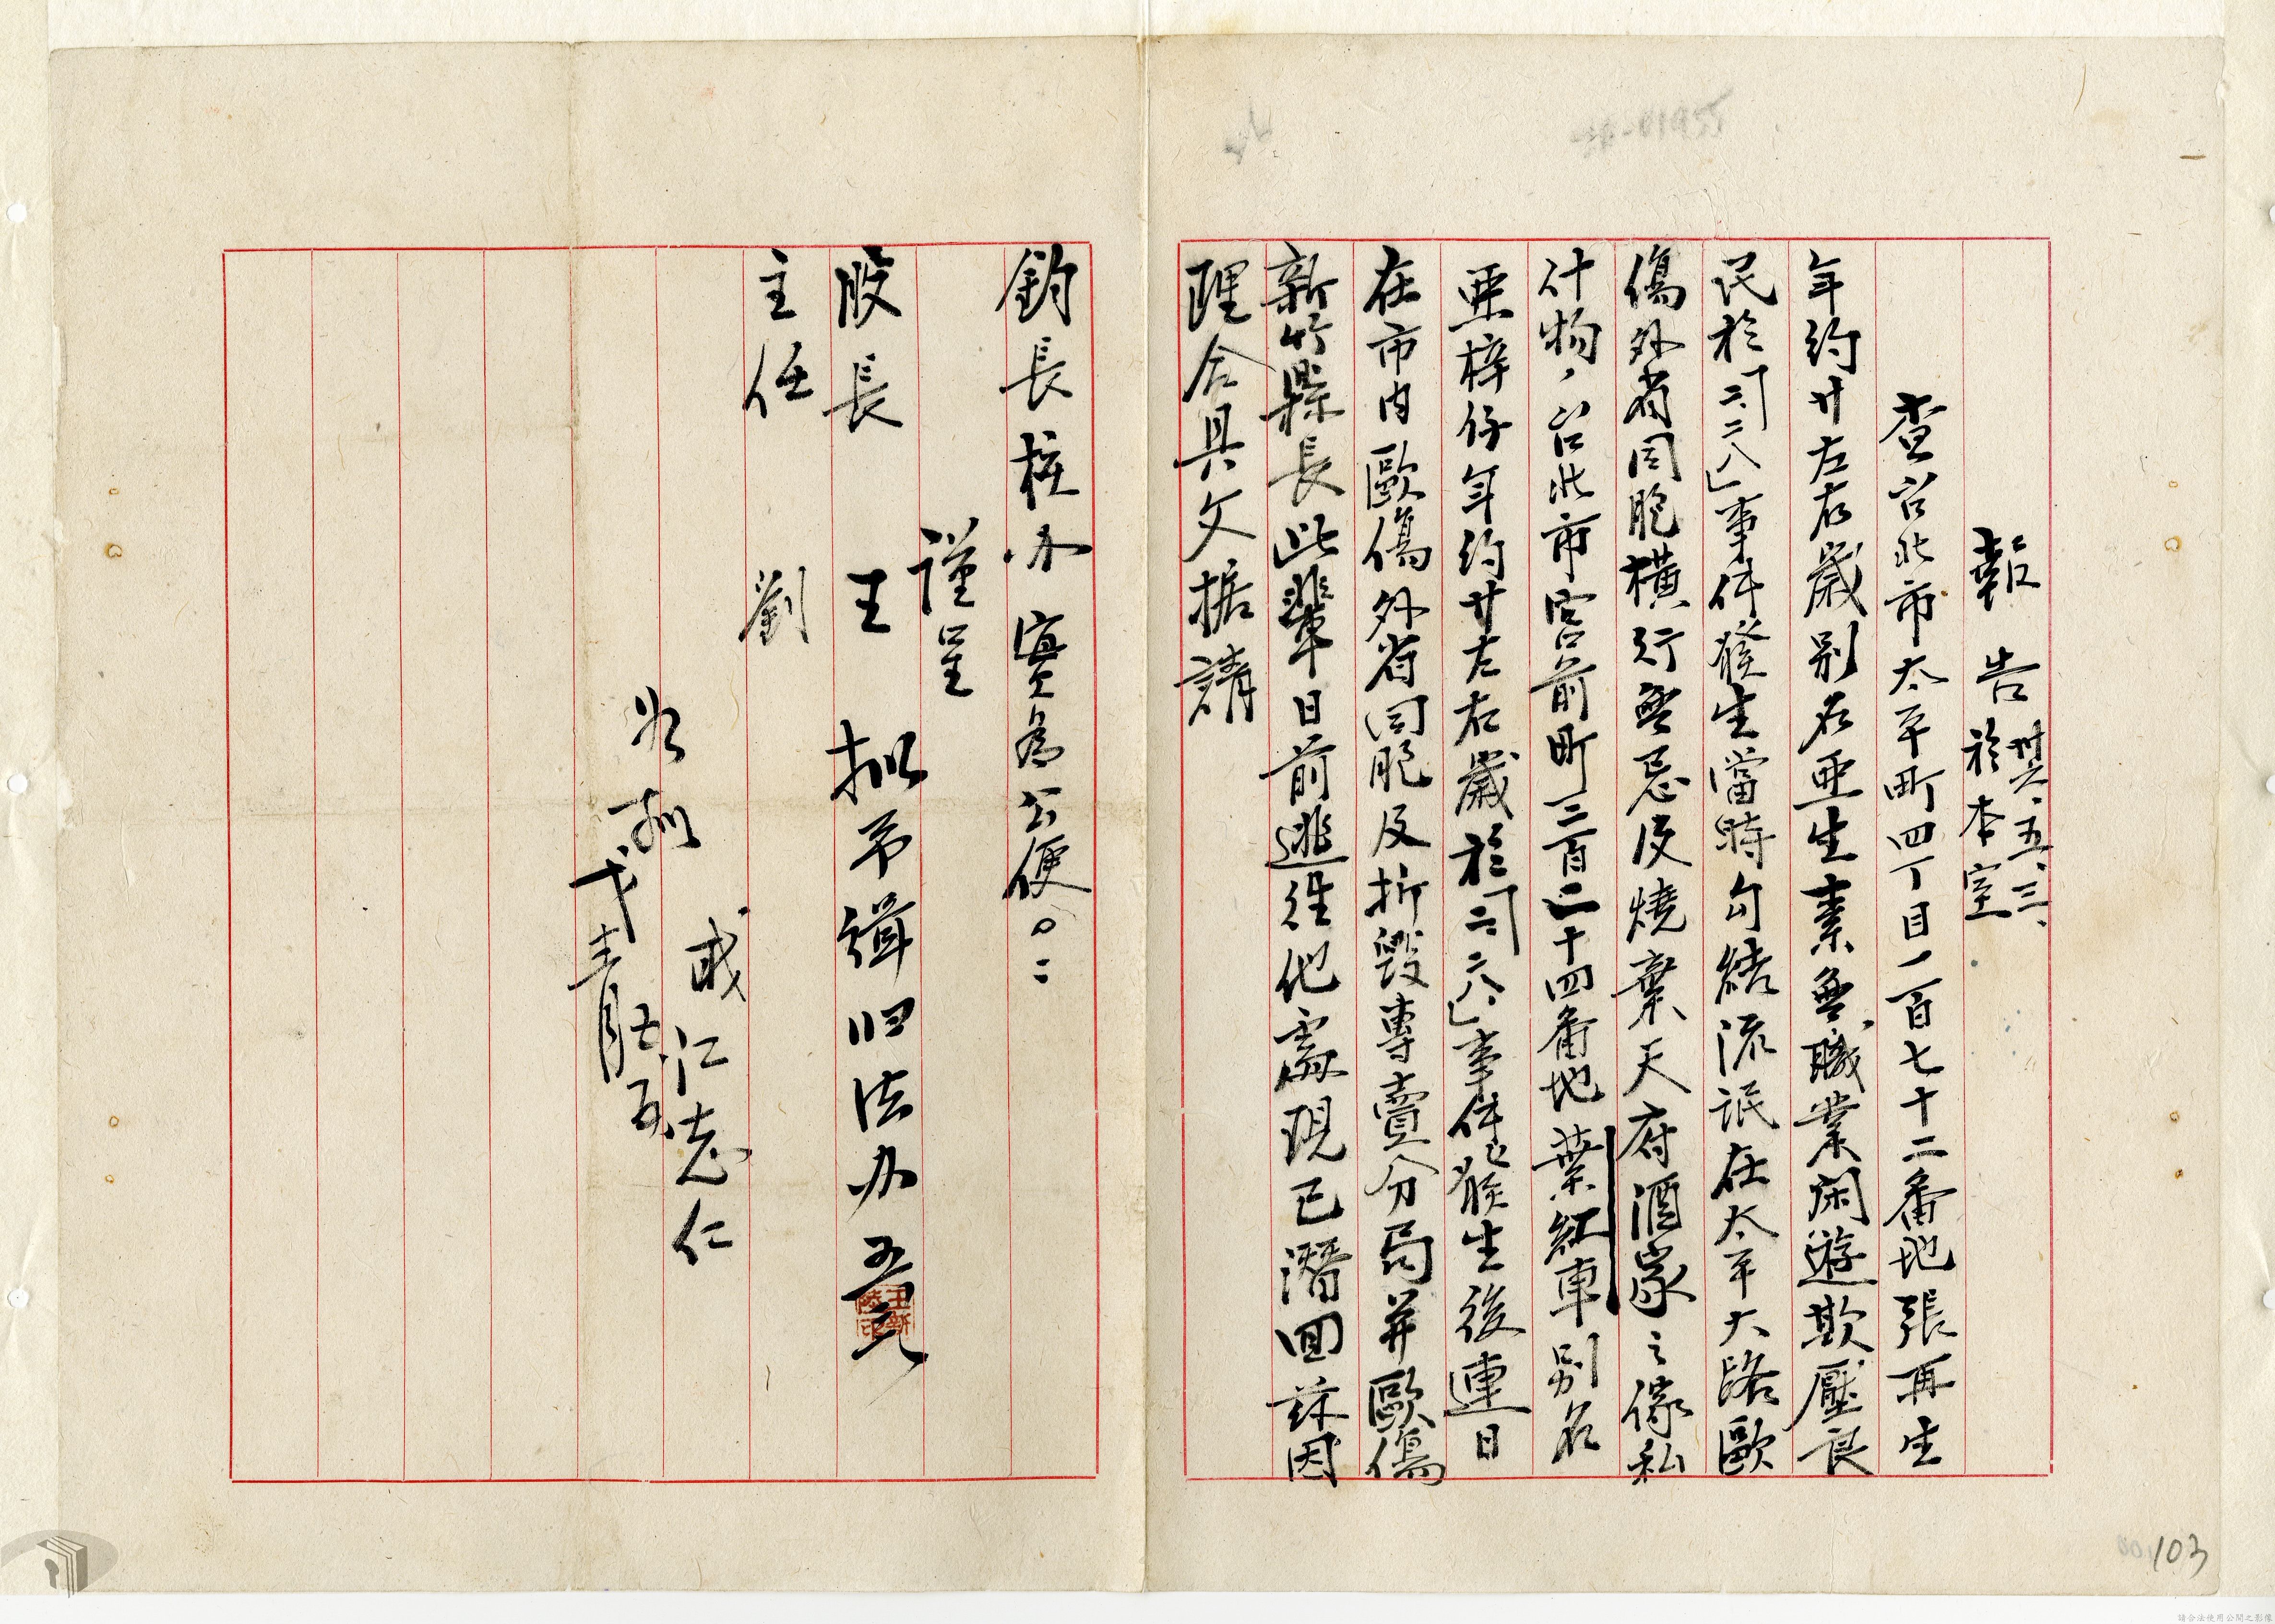 報告 卅六、五、三、
於本室
查台北市太平町四丁目一百七十二番地張再生
年約廿左右歲別名亜生素無職業閑遊欺壓良
民於「二、二八」事件發生當時勾結流氓在太平大路毆
傷外省同胞橫行無忌及燒棄天府酒家之傢私
什物，台北市宮前町三百二十四番地葉紅車別名
亜梓仔年約廿左右歲於「二、二八」事件發生後連日
在市內毆傷外省同胞及折毀專賣分局并毆傷
新竹縣長此輩日前逃往他處現已潛回茲因
理合具文据請
鈞長核办實為公便。
謹呈
股長 王 拟予緝归法办
王新陵印
主任 劉
職 江志仁
如拟
103
請合法使用公開之影像